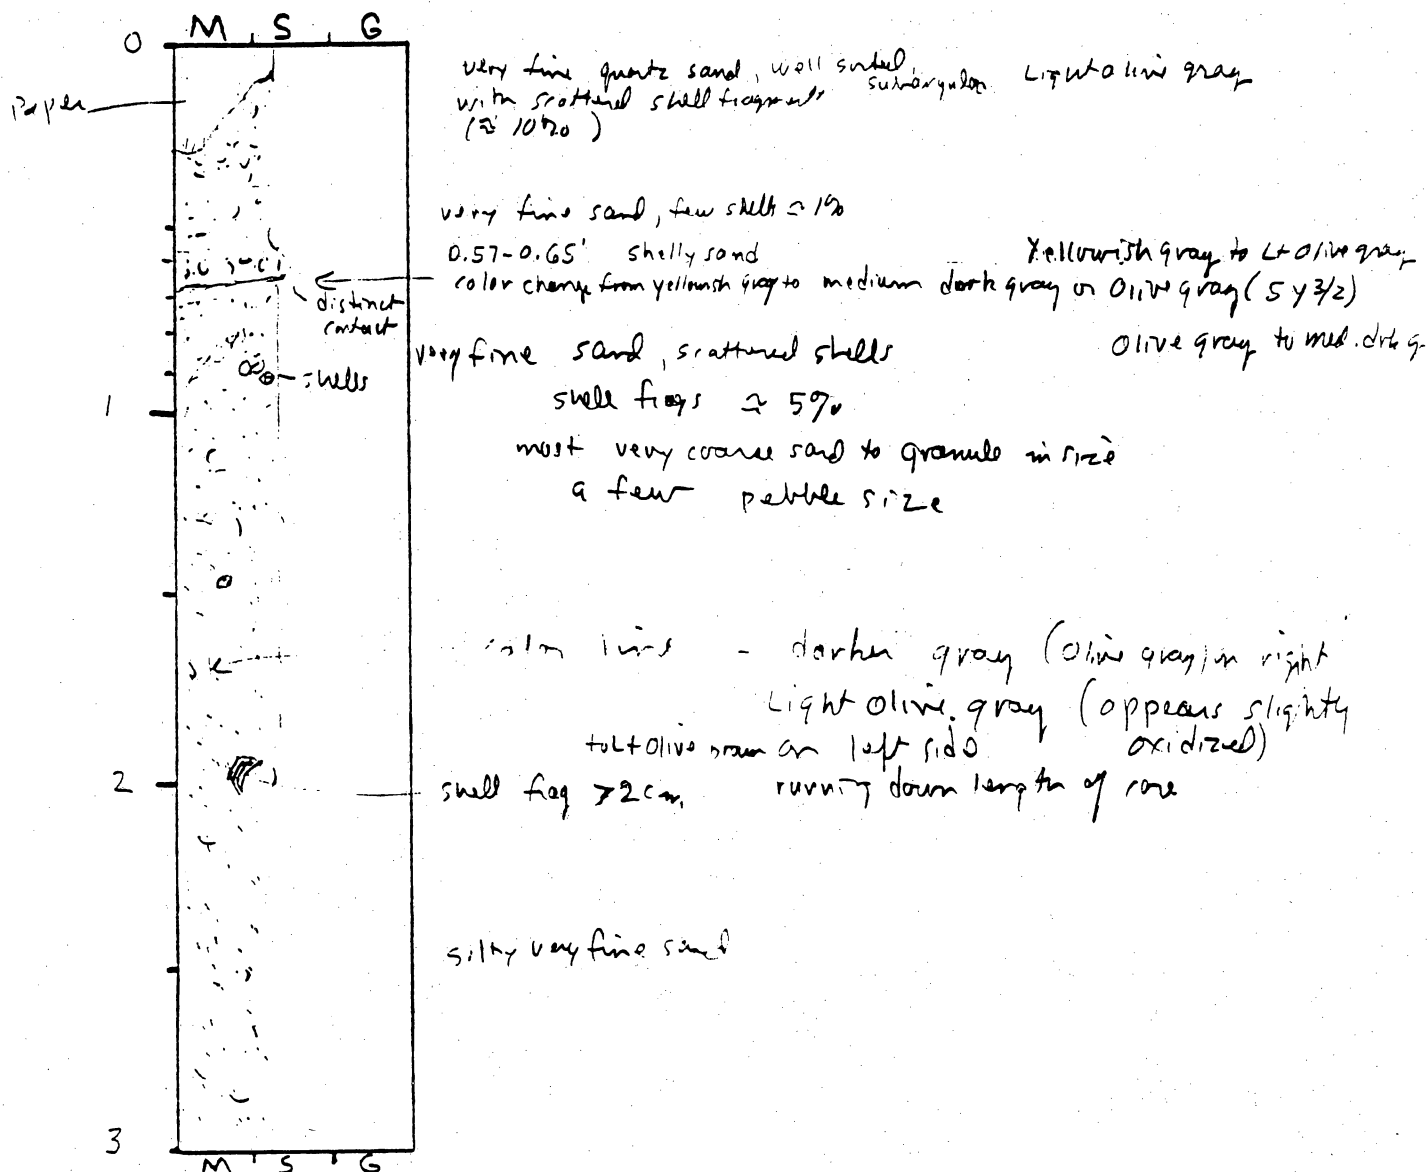 M S G
0
Paper
very fine quartz sand, well sorted, subangular Light olive gray
with scattered shell fragments
(≈ 10%)
very fine sand, few shells ≈ 1%
0.57-0.65' shelly sand Yellowish gray to Lt olive gray
color change from yellowish gray to medium dark gray or Olive gray (5 y 3/2)
distinct
contact
very fine sand, scattered shells Olive gray to med. drk g
shells
shell frags ≈ 5%
1
most very coarse sand to granule in size
a few pebble size
color line - darker gray (Olive gray) on right
Light Olive gray (appears slightly
to Lt Olive brown on left side oxidized)
2
shell frag >2cm, running down length of core
silty very fine sand
3
M S G